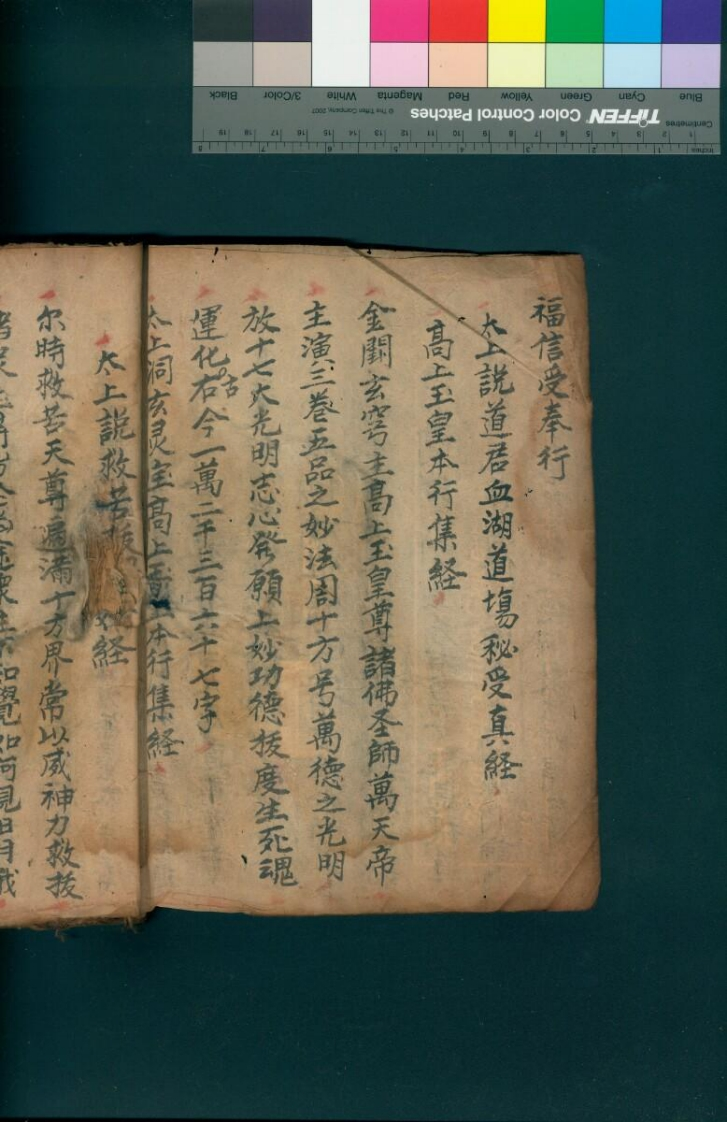 福信受奉行
太上說道君血湖道塲秘受真経
高上玉皇本行集経
金闕玄穹主高上玉皇尊諸佛圣師萬天帝
主演三卷五品之妙法周十方号萬德之光明
放十七大光明志心發願上妙功德拔度生死魂
運化右古今一萬二千三百六十七字
太上洞玄灵宝高上玉本行集経
太上說救苦拔経
尔時救苦天尊遍滿十方界常以威神力救拔
不知覺如何見日月我
TIFFEN Color Control Patches
© The Tiffen Company, 2007
Centimetres
Inches
Blue Cyan Green Yellow Red Magenta White 3/Color Black
1 2 3 4 5 6 7 8 9 10 11 12 13 14 15 16 17 18 19
1 2 3 4 5 6 7 8